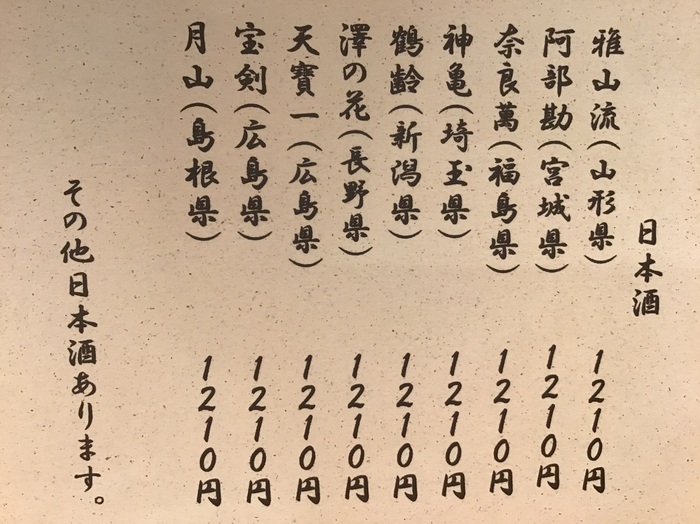 日本酒
雅山流（山形県） 1210円
阿部勘（宮城県） 1210円
奈良萬（福島県） 1210円
神亀（埼玉県） 1210円
鶴齢（新潟県） 1210円
澤の花（長野県） 1210円
天寶一（広島県） 1210円
宝剣（広島県） 1210円
月山（島根県） 1210円
その他日本酒あります。